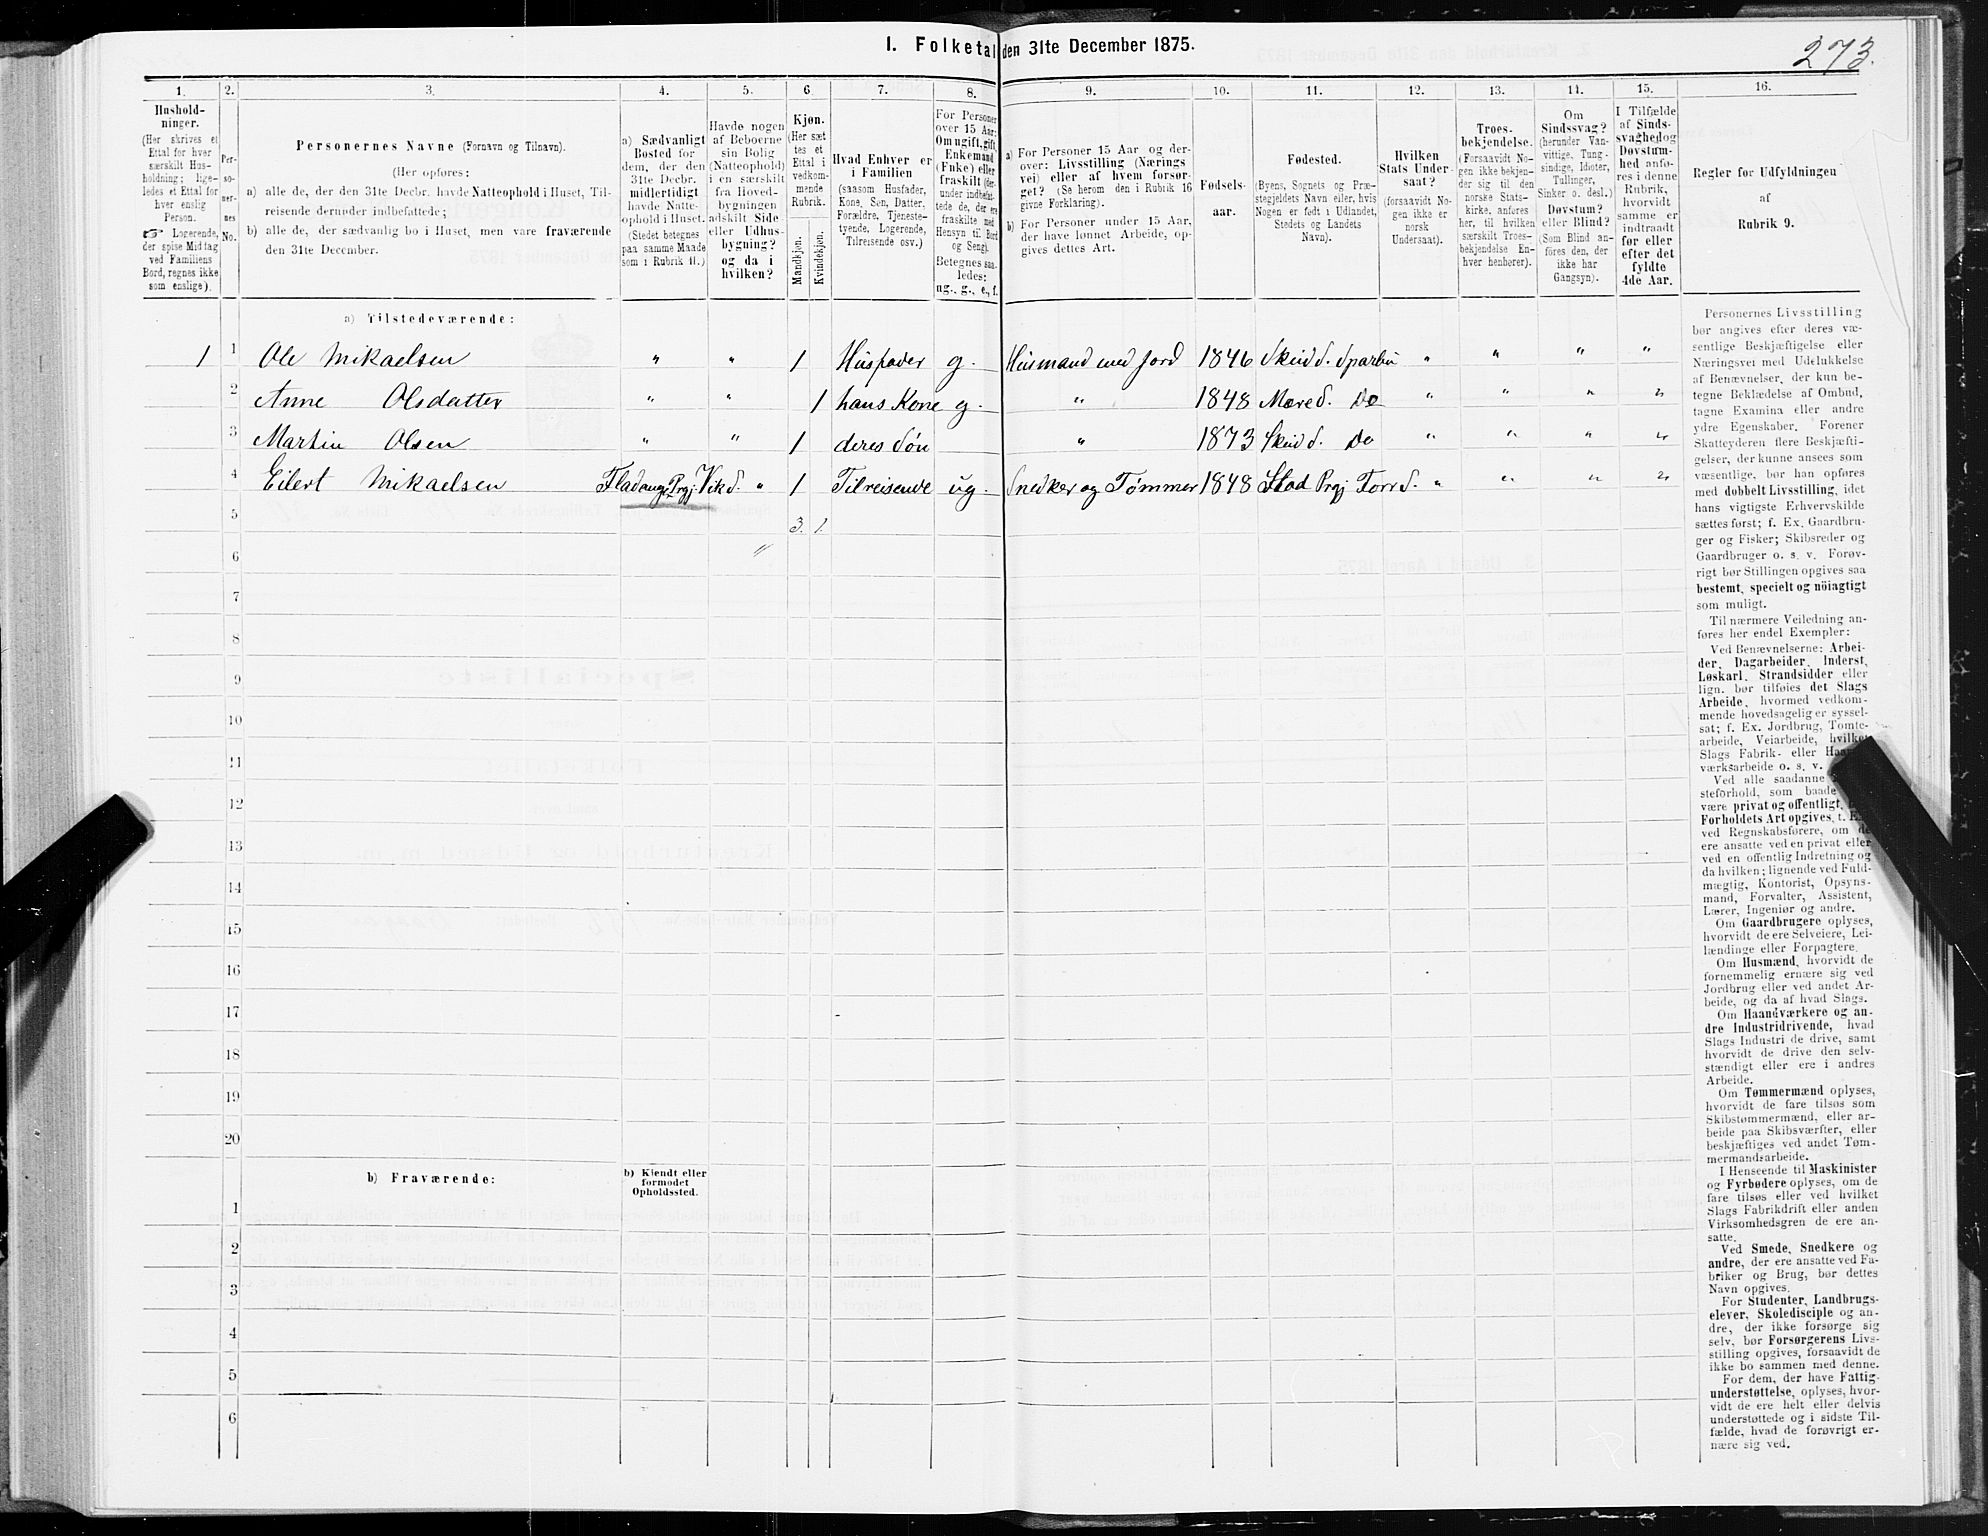 I. Folketal den 31te December 1875.
273.
1.
2.
3.
4.
5.
6.
7.
8.
9.
10.
11.
12.
13.
14.
15.
16.
Hushold-
ninger.
(Her skrives et
Ettal for hver
særskilt Hus-
holdning; lige-
ledes et Ettal for
hver enslig
Person.
☞ Logerende,
der spise Middag
ved Familiens
Bord, regnes ikke
som enslige).
Per-
so-
ner-
nes
No.
Personernes Navne (Fornavn og Tilnavn).
(Her opføres:
a) alle de, der den 31te Decbr. havde Natteophold i Huset, Til-
reisende derunder indbefattede;
b) alle de, der sædvanlig bo i Huset, men vare fraværende
den 31te December.
a) Sædvanligt
Bosted for
dem, der den
31te Decbr.
midlertidigt
havde Natte-
ophold i Huset.
(Stedet betegnes
paa samme Maade
som i Rubrik 11.)
Havde nogen
af Beboerne
sin Bolig
(Natteophold)
i en særskilt
fra Hoved-
bygningen
adskilt Side
eller Udhus-
bygning?
og da i
hvilken?
Kjøn.
(Her sæt
tes et
Ettal i
vedkom-
mende
Rubrik.
Mandkjøn.
Kvindekjøn.
Hvad Enhver er
i Familien
(saasom Husfader,
Kone, Søn, Datter,
Forældre, Tjeneste-
tyende, Logerende,
Tilreisende osv.)
For Personer
over 15 Aar:
Om ugift, gift,
Enkemand
(Enke) eller
fraskilt (der-
under indbefat-
tede de, der ere
fraskilte med
Hensyn til Bord
og Seng).
Betegnes saa-
ledes:
ug., g., e., f.
a) For Personer 15 Aar og der-
over: Livsstilling (Nærings
vei) eller af hvem forsør-
get? (Se herom den i Rubrik 16
givne Forklaring).
b) For Personer under 15 Aar,
der have lønnet Arbeide, op-
gives dettes Art.
Fødsels-
aar.
Fødested.
(Byens, Sognets og Præ-
stegjeldets Navn eller, hvis
Nogen er født i Udlandet,
Stedets og Landets
Navn).
Hvilken
Stats Under-
saat?
(forsaavidt No-
gen ikke er
norsk
Undersaat).
Troes-
bekjendelse.
(Forsaavidt No-
gen ikke bekjen-
der sig til den
norske Stats-
kirke, anføres
her, til hvilken
særskilt Troes-
bekjendelse En-
hver henhører).
Om
Sindssvag?
(herunder Van-
vittige, Tung-
sindige, Idioter,
Tullinger,
Sinker o. desl.)
Døvstum?
eller Blind?
(Som Blind an-
føres den, der
ikke har
Gangsyn).
I Tilfælde
af Sinds-
svaghed og
Døvstum-
hed anfø-
res i denne
Rubrik,
hvorvidt
samme er
indtraadt
før eller
efter det
fyldte
4de Aar.
Regler for Udfyldningen
af
Rubrik 9.
a) Tilstedeværende:
1 1 Ole Mikaelsen " " 1 Husfader g. Husmand med Jord 1846 Skeid S. Sparbu " " " "
2 Anne Olsdatter " " 1 hans Kone g. " 1848 Mære S. Do " " " "
3 Martin Olsen " " 1 deres Søn " 1873 Skeid S. Do " " " "
4 Eilert Mikaelsen Fladange Prgj. Vik S. " 1 Tilreisende ug. Snedker og Tømmer 1848 Stod Prgj For S. " " " "
5 3. 1.
6 "
7
8
9
10
11
12
13
14
15
16
17
18
19
20
b) Fraværende:
b) Kjendt eller
formodet
Opholdssted.
1
2
3
4
5
6
Personernes Livsstilling
bør angives efter deres væ-
sentlige Beskjæftigelse eller
Næringsvei med Udelukkelse
af Benævnelser, der kun be-
tegne Beklædelse af Ombud,
tagne Examina eller andre
ydre Egenskaber. Forener
Skatteyderen flere Beskjæfti-
gelser, der kunne ansees som
væsentlige, bør han opføres
med dobbelt Livsstilling, idet
hans vigtigste Erhvervskilde
sættes først; f. Ex. Gaardbru-
ger og Fisker; Skibsreder og
Gaardbruger o. s. v. Forøv-
rigt bør Stillingen opgives saa
bestemt, specielt og nöiagtigt
som muligt.
Til nærmere Veiledning an-
føres her endel Exempler:
Ved Benævnelserne: Arbei-
der, Dagarbeider, Inderst,
Løskarl, Strandsidder eller
lign. bør tilføies det Slags
Arbeide, hvormed vedkom-
mende hovedsagelig er syssel-
sat; f. Ex. Jordbrug, Tomte-
arbeide, Veiarbeide, hvilket
Slags Fabrik- eller Haand-
værksarbeide o. s. v.
Ved alle saadanne
steforhold, som baade
være privat og offentligt,
Forholdets Art opgives, t. Ex.
ved Regnskabsførere, om de
ere ansatte ved en privat eller
ved en offentlig Indretning og
da hvilken; lignende ved Fuld-
mægtig, Kontorist, Opsyns-
mand, Forvalter, Assistent,
Lærer, Ingeniør og andre.
Om Gaardbrugere oplyses,
hvorvidt de ere Selveiere, Lei-
lændinge eller Forpagtere.
Om Husmænd, hvorvidt de
fornemmelig ernære sig ved
Jordbrug eller ved andet Ar-
beide, og da af hvad Slags.
Om Haandværkere og an-
dre Industridrivende, hvad
Slags Industri de drive, samt
hvorvidt de drive den selv-
stændigt eller ere i andres
Arbeide.
Om Tømmermænd oplyses,
hvorvidt de fare tilsøs som
Skibstømmermænd, eller ar-
beide paa Skibsværfter, eller
beskjæftiges ved andet Tøm-
mermandsarbeide.
I Henseende til Maskinister
og Fyrbødere oplyses, om de
fare tilsøs eller ved hvilket
Slags Fabrikdrift eller anden
Virksomhedsgren de ere an-
satte.
Ved Smede, Snedkere og
andre, der ere ansatte ved Fa-
briker og Brug, bør dettes
Navn opgives.
For Studenter, Landbrugs-
elever, Skoledisciple og an-
dre, der ikke forsørge sig
selv, bør Forsørgerens Livs-
stilling opgives, forsaavidt de
ikke bo sammen med denne.
For dem, der have Fattig-
understøttelse, oplyses, hvor-
vidt de ere helt eller delvis
understøttede og i sidste Til-
fælde, hvad de forøvrigt er-
nære sig ved.